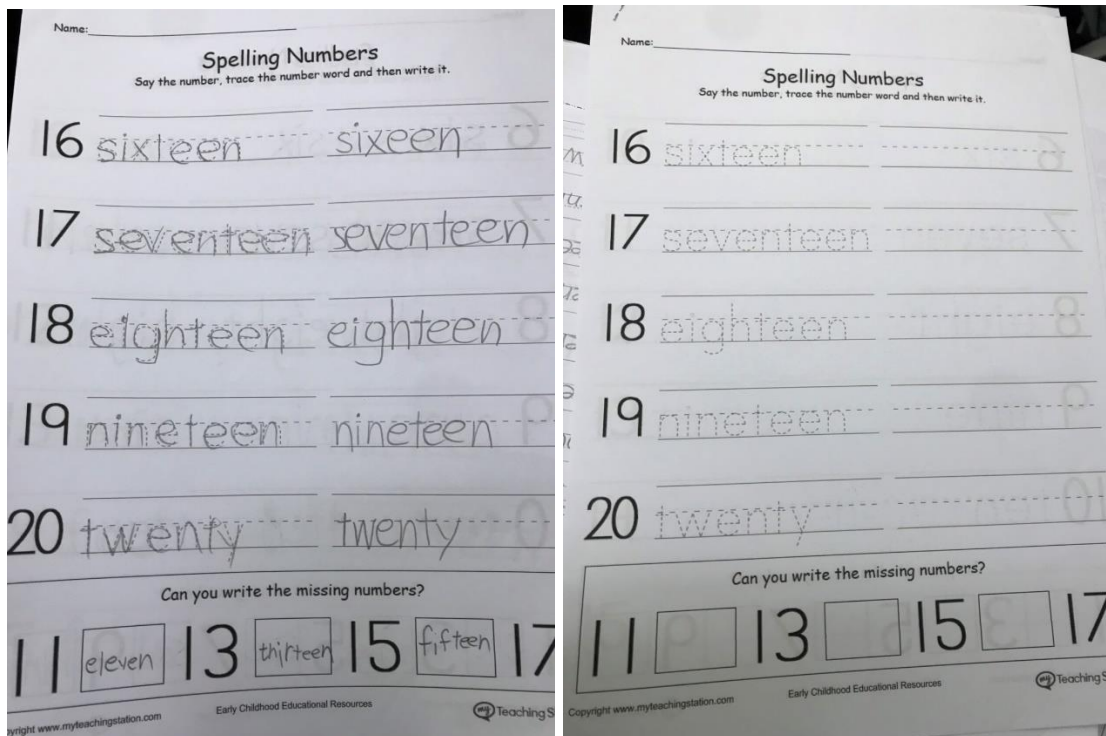 Name:
Spelling Numbers
Say the number, trace the number word and then write it.
16 sixteen sixeen
17 seventeen seventeen
18 eighteen eighteen
19 nineteen nineteen
20 twenty twenty
Can you write the missing numbers?
11 eleven 13 thirteen 15 fifteen 17
yright www.myteachingstation.com Early Childhood Educational Resources my Teaching S
Name:
Spelling Numbers
Say the number, trace the number word and then write it.
16 sixteen
17 seventeen
18 eighteen
19 nineteen
20 twenty
Can you write the missing numbers?
11 13 15 17
Copyright www.myteachingstation.com Early Childhood Educational Resources my Teaching S